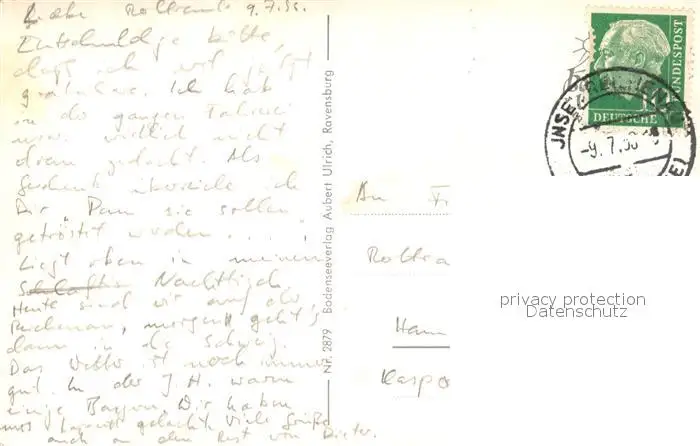 Liebe Roltraut 9.7.56.
Entschuldige bitte,
daß ich erst jetzt
gratuliere. Ich hab
in der ganzen Fahrerei
wirklich nicht
dran gedacht. Als
Geschenk überreiche ich
Dir „Denn sie sollen
getröstet werden....
liegt oben in meinem
Nachttisch.
Heute sind wir auf der
Reichenau, morgen geht's
dann in die Schweiz.
Das Wetter ist noch immer
gut. In der J.H. waren
einige Bayern. Wir haben
uns gedacht Viele Grüße
auch an den Rest von Dieter.
Nr. 2879 Bodenseeverlag Aubert Ulrich, Ravensburg
An
Roltra
Ham
Kaspa
10
DEUTSCHE BUNDESPOST
INSEL REICHENAU
-9.7.56
privacy protection
Datenschutz